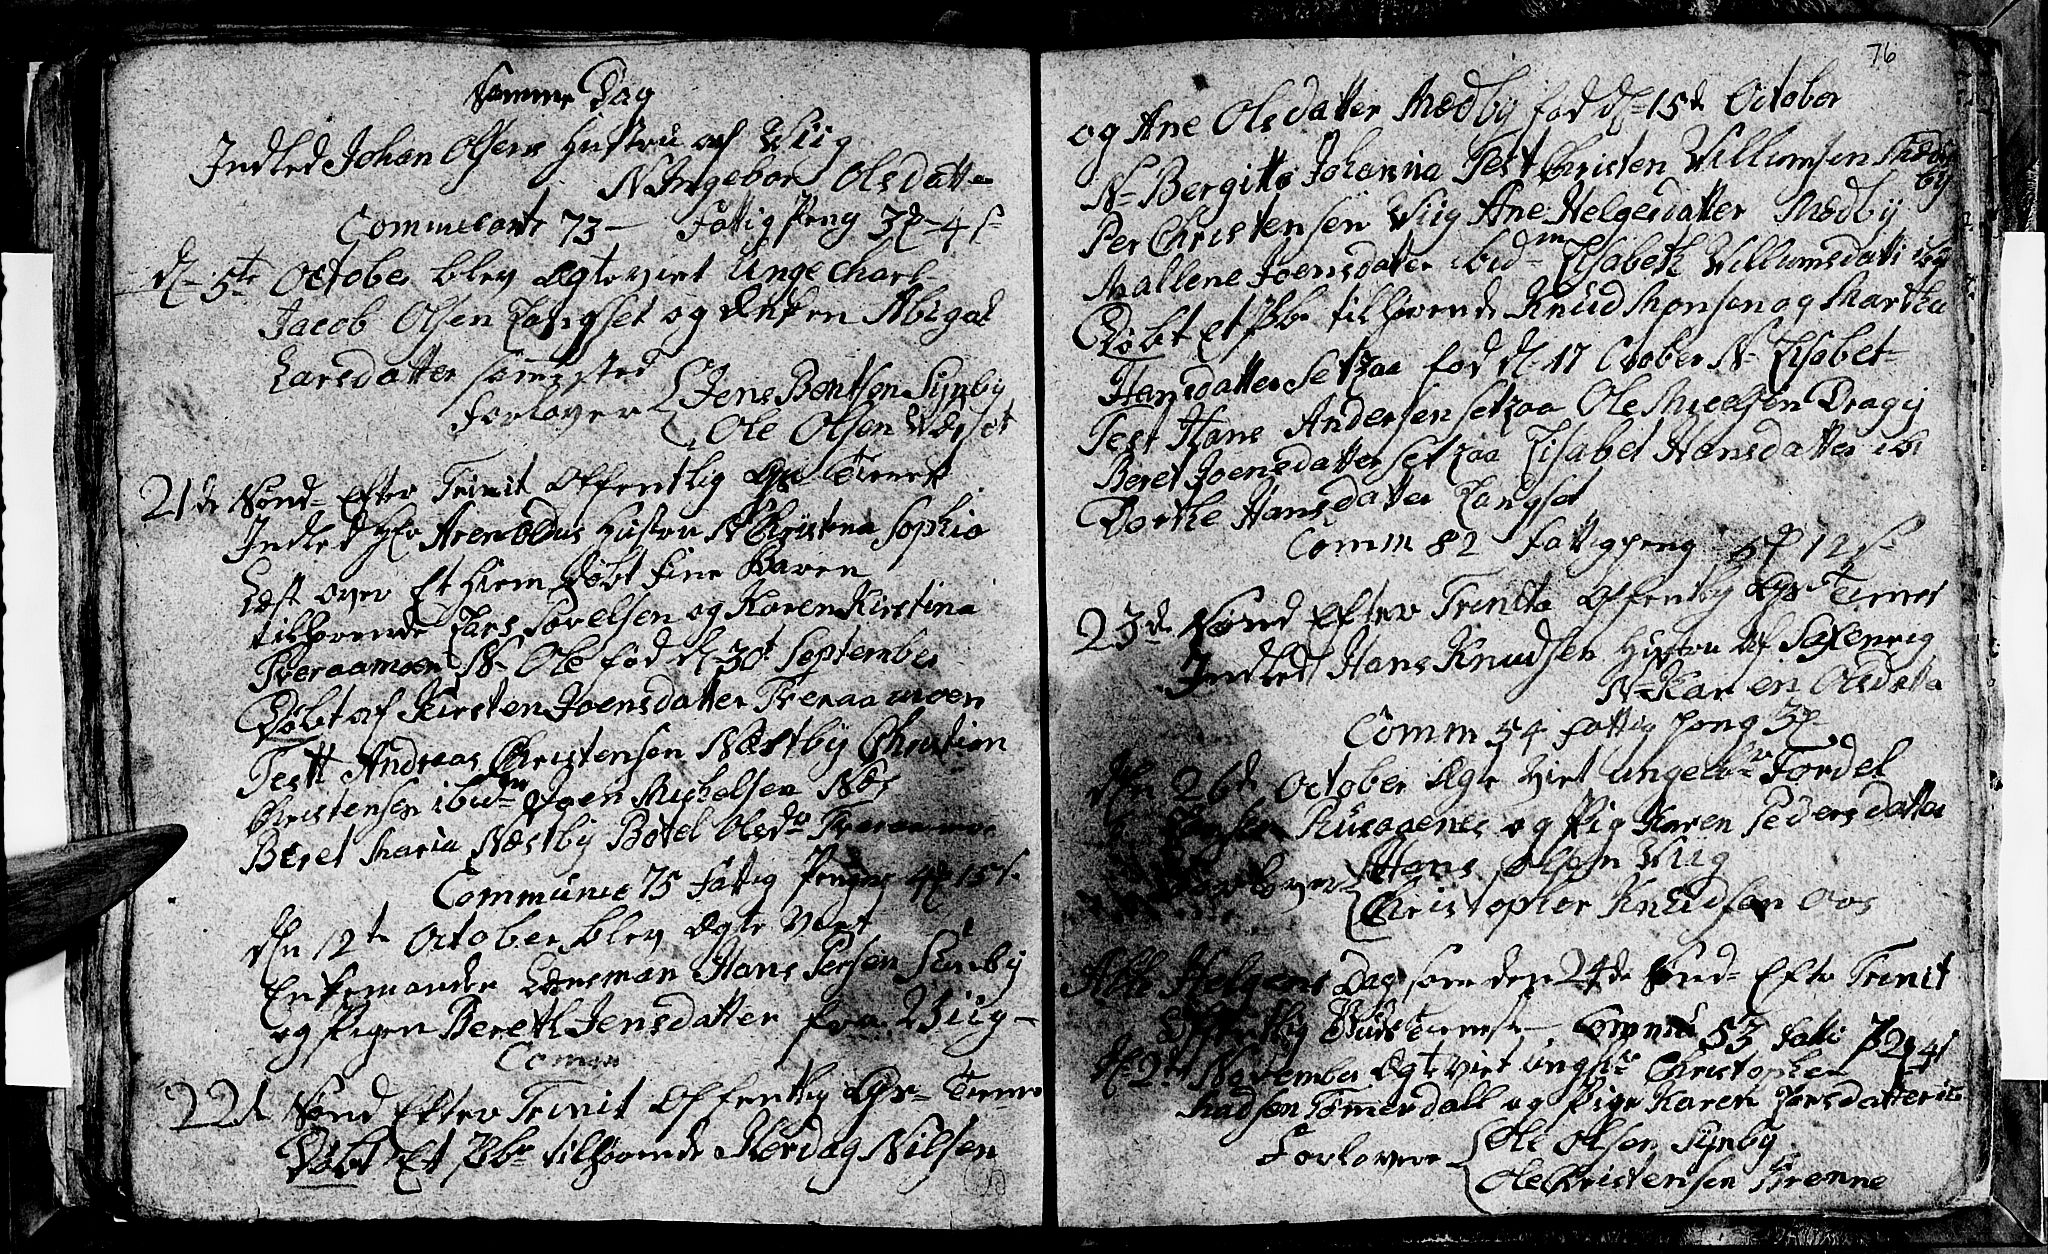 Samme Dag
Indled Johan Olsens Hustru af Wiig
N. Ingebor Olsdatter
Communicante 73 – Fattig Peng 3 4 s
d. 5te October blev Ægteviet Unge Charl
Jacob Olsen Langset og Enken Abigal
Larsdatter sammested
Forlover Jens Bentsen Synby
Ole Olsen
21de Sønd. Efter Trinit Offentlig Tieneste
Indled Hr Arenoldus Hustru N. Christena Sophia
Læst over Et Hiem Døbt Barn
tilhørende Lars Povelsen og Karen Kirstina
Tveraamoen N. Ole fød d. 30t September
Døbt af Kirsten Joensdatter Tveraamoen
Test Andreas Christensen Næstby Christian
Christensen ibidm Joen Michelsen Næs
Beret Maria Næstby Botel Olsdr Tveraamoe
Communic 75 Fattig Penge 4 15 s.
den 12te October blev Ægte Viet
Enkemanden Lensman Hans Persen Sünby
og Pigen Bereth Jensdatter fra Wiig –
Comm
22de Sønd Efter Trinit Offentlig Tieneste
Døbt Et Pb. tilhørende Herdag Nilsen
76
og Ane Olsdatter Modby fød d. 15de October
N. Bergitte Johanna Test Christen Willumsen Modby
Per Christensen Wiig Ane Helgesdatter Modby
Mallene Joensdatter ibidm Elsabeth Willumsdatt ibid
Døbt Et Pb. tilhørende Knud Monsen og Martha
Hansdatter Setraa fød d. 17 October N. Elsabet
Test Hans Andersen Setraa Ole Michelsen Dragej
Beret Joensdatter Setraa Elsabet Hansdatter ibi
Dorthe Hansdatter Langset
Comm 82 Fattigpeng 12 s
23de Sønd Efter Trinita Offentlig Tienest
Indled Hans Knudsen Hustru Af Saxenvig
N. Karen Olsdatte
Comm 54 fattig peng 3
den 26de October Ægte Viet Ungekar Tordel
Rusaagenes og Pig Karen Pedersdatter
Forlover Hans Olsen Wiig
Christopher Knudsen Aas
Alle Helgens Dag som den 24de Sønd. Efter Trinit
Offentlig Tieneste Commu 53 fatti P 2 4 s
d. 2de November Ægteviet Ungk Christopher
Madsen Tømmerdall og Pige Karen Larsdatter
Forlovere Ole Olsen Synby
Ole Christensen Brenne